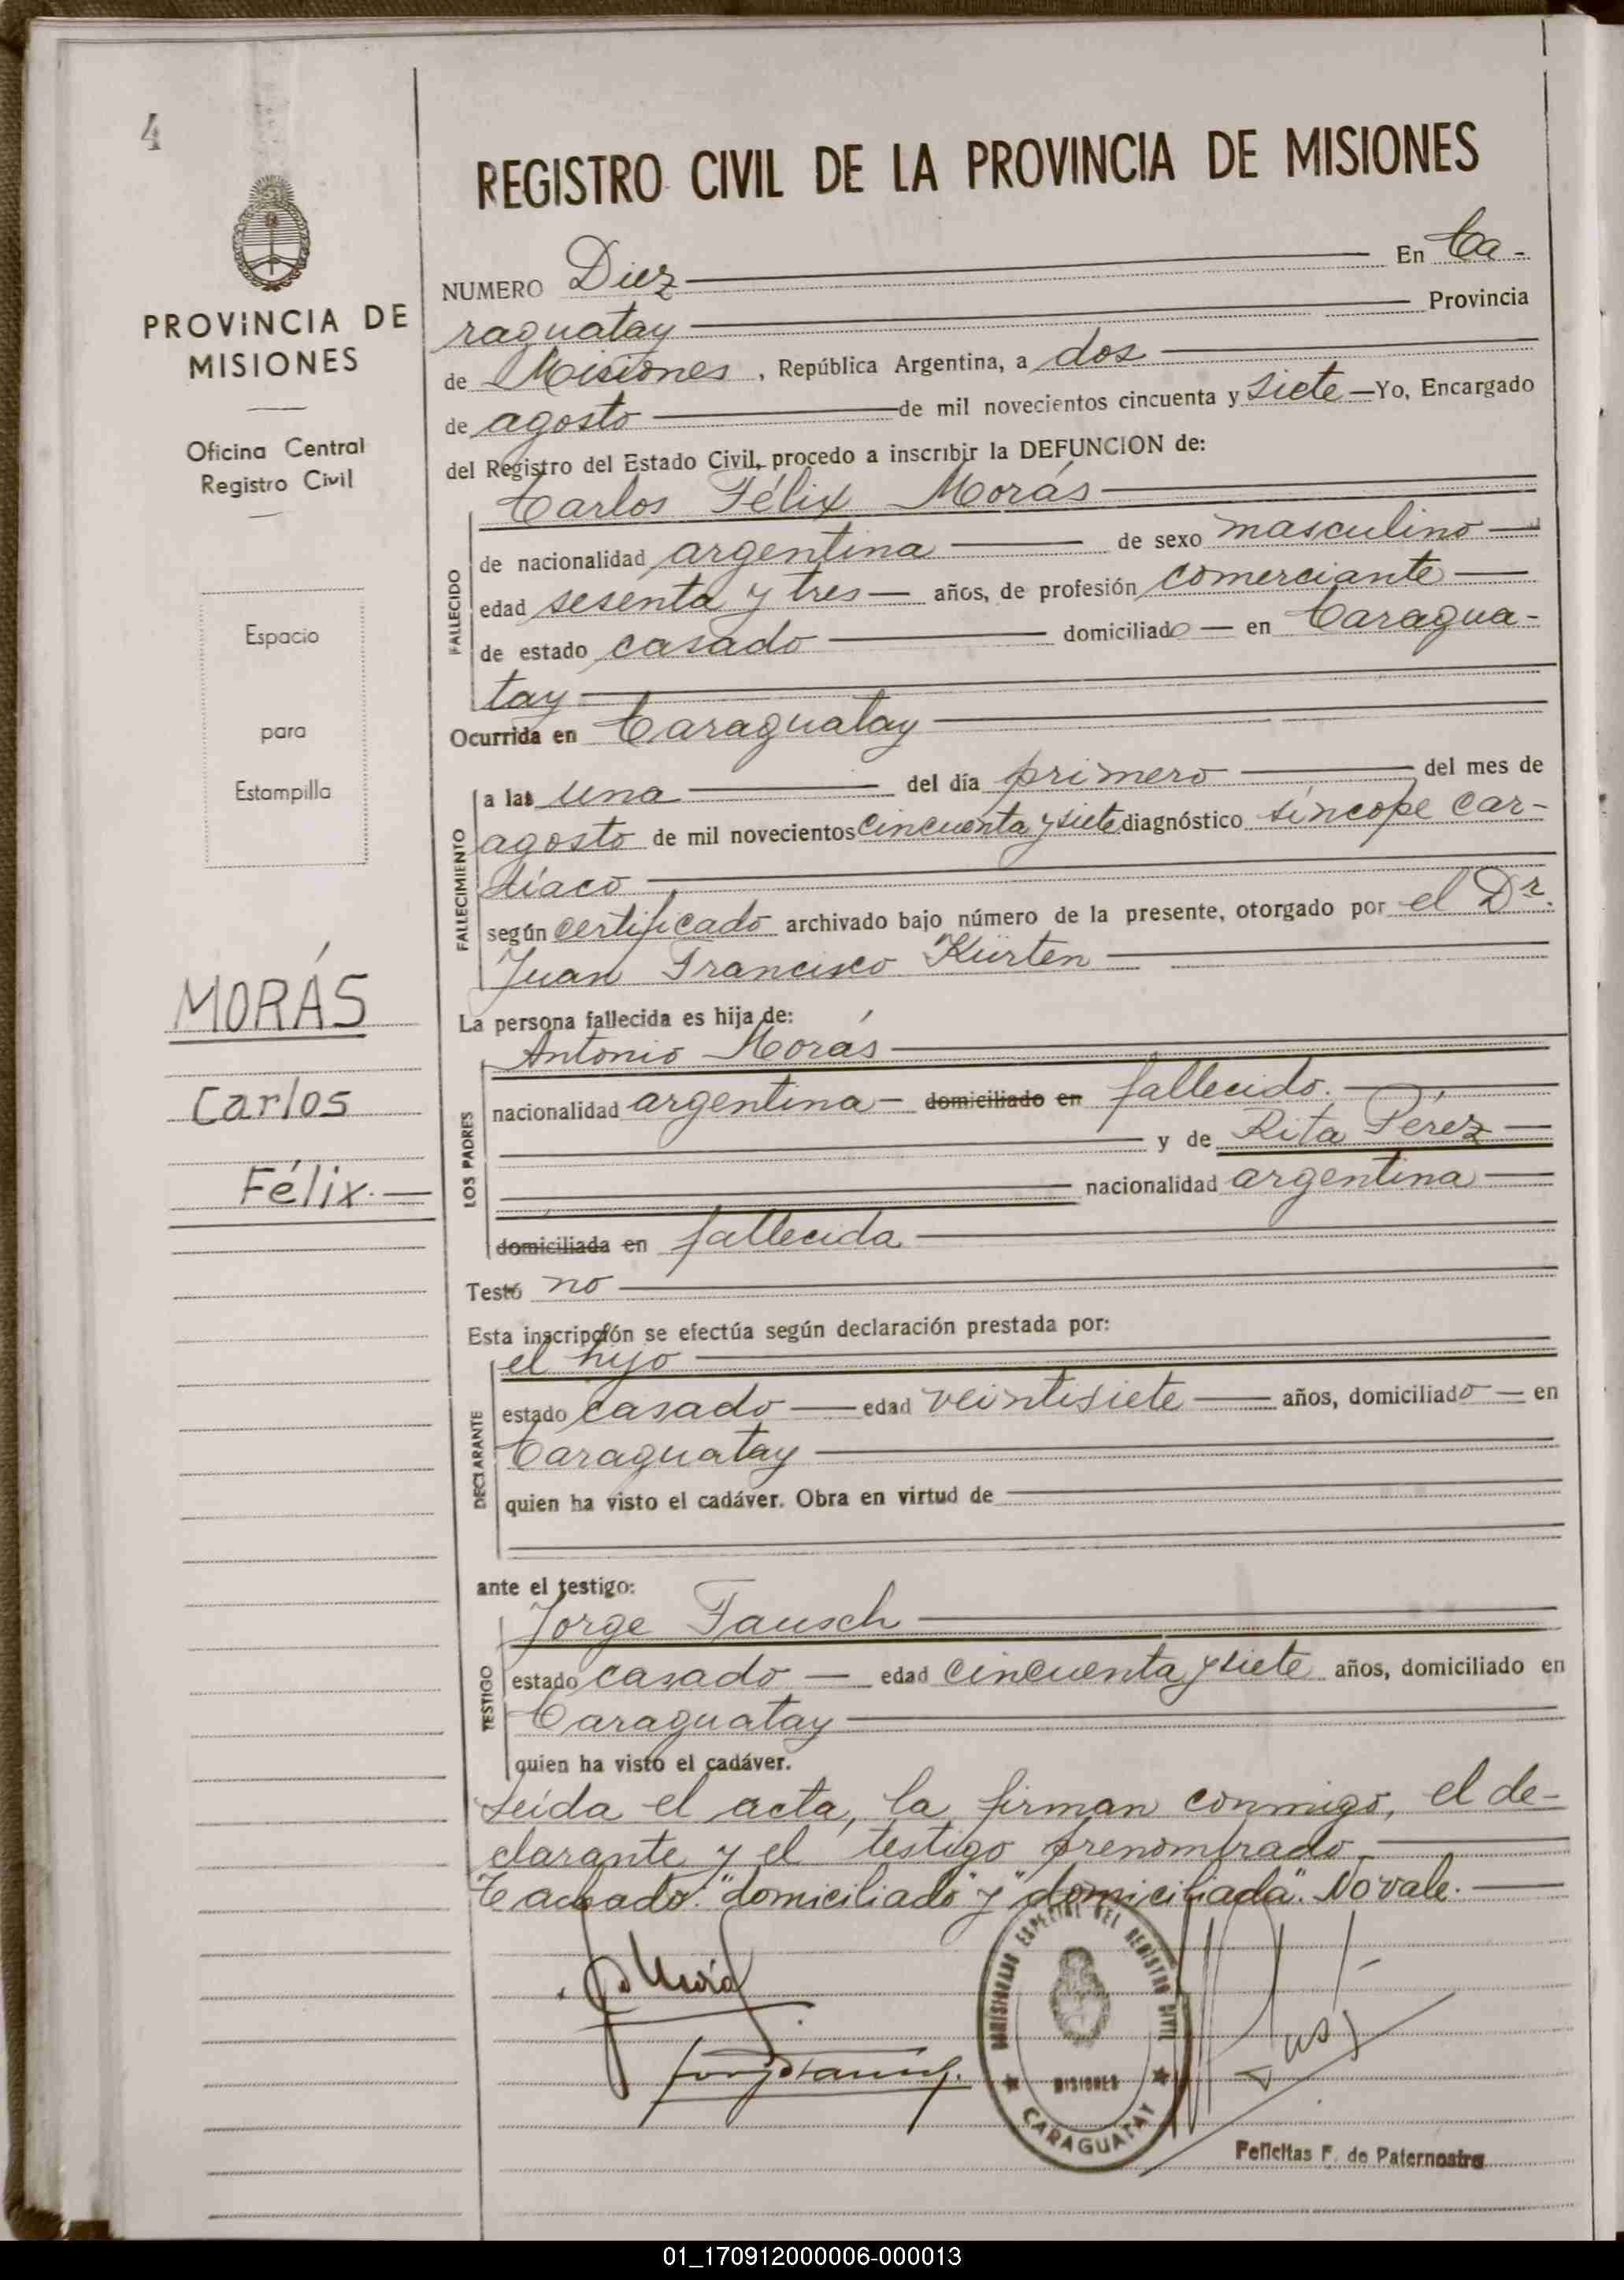 4
PROVINCIA DE
MISIONES
Oficina Central
Registro Civil
Espacio
para
Estampilla
MORÁS
Carlos
Félix.
REGISTRO CIVIL DE LA PROVINCIA DE MISIONES
NUMERO Diez En Ca-
raguatay Provincia
de Misiones, República Argentina, a dos
de agosto de mil novecientos cincuenta y siete — Yo, Encargado
del Registro del Estado Civil, procedo a inscribir la DEFUNCION de:
Carlos Félix Morás
FALLECIDO
de nacionalidad argentina de sexo masculino
edad sesenta y tres años, de profesión comerciante
de estado casado domiciliado en Caragua-
tay
Ocurrida en Caraguatay
FALLECIMIENTO
a las una del día primero del mes de
agosto de mil novecientos cincuenta y siete diagnóstico síncope car-
díaco
según certificado archivado bajo número de la presente, otorgado por el Dr.
Juan Francisco Kürten
La persona fallecida es hija de:
LOS PADRES
Antonio Morás
nacionalidad argentina domiciliado en fallecido.
y de Rita Pérez
nacionalidad argentina
domiciliada en fallecida
Testó no
Esta inscripción se efectúa según declaración prestada por:
DECLARANTE
el hijo
estado casado edad veintisiete años, domiciliado en
Caraguatay
quien ha visto el cadáver. Obra en virtud de
ante el testigo:
TESTIGO
Jorge Tausch
estado casado edad cincuenta y siete años, domiciliado en
Caraguatay
quien ha visto el cadáver.
Leída el acta, la firman conmigo, el de-
clarante y el testigo prenombrado.
Tachado: "domiciliado" y "domiciliada". No vale.
ESPECIAL DEL REGISTRO CIVIL
MISIONES
CARAGUATAY
Felicitas F. de Paternostro
01_170912000006-000013